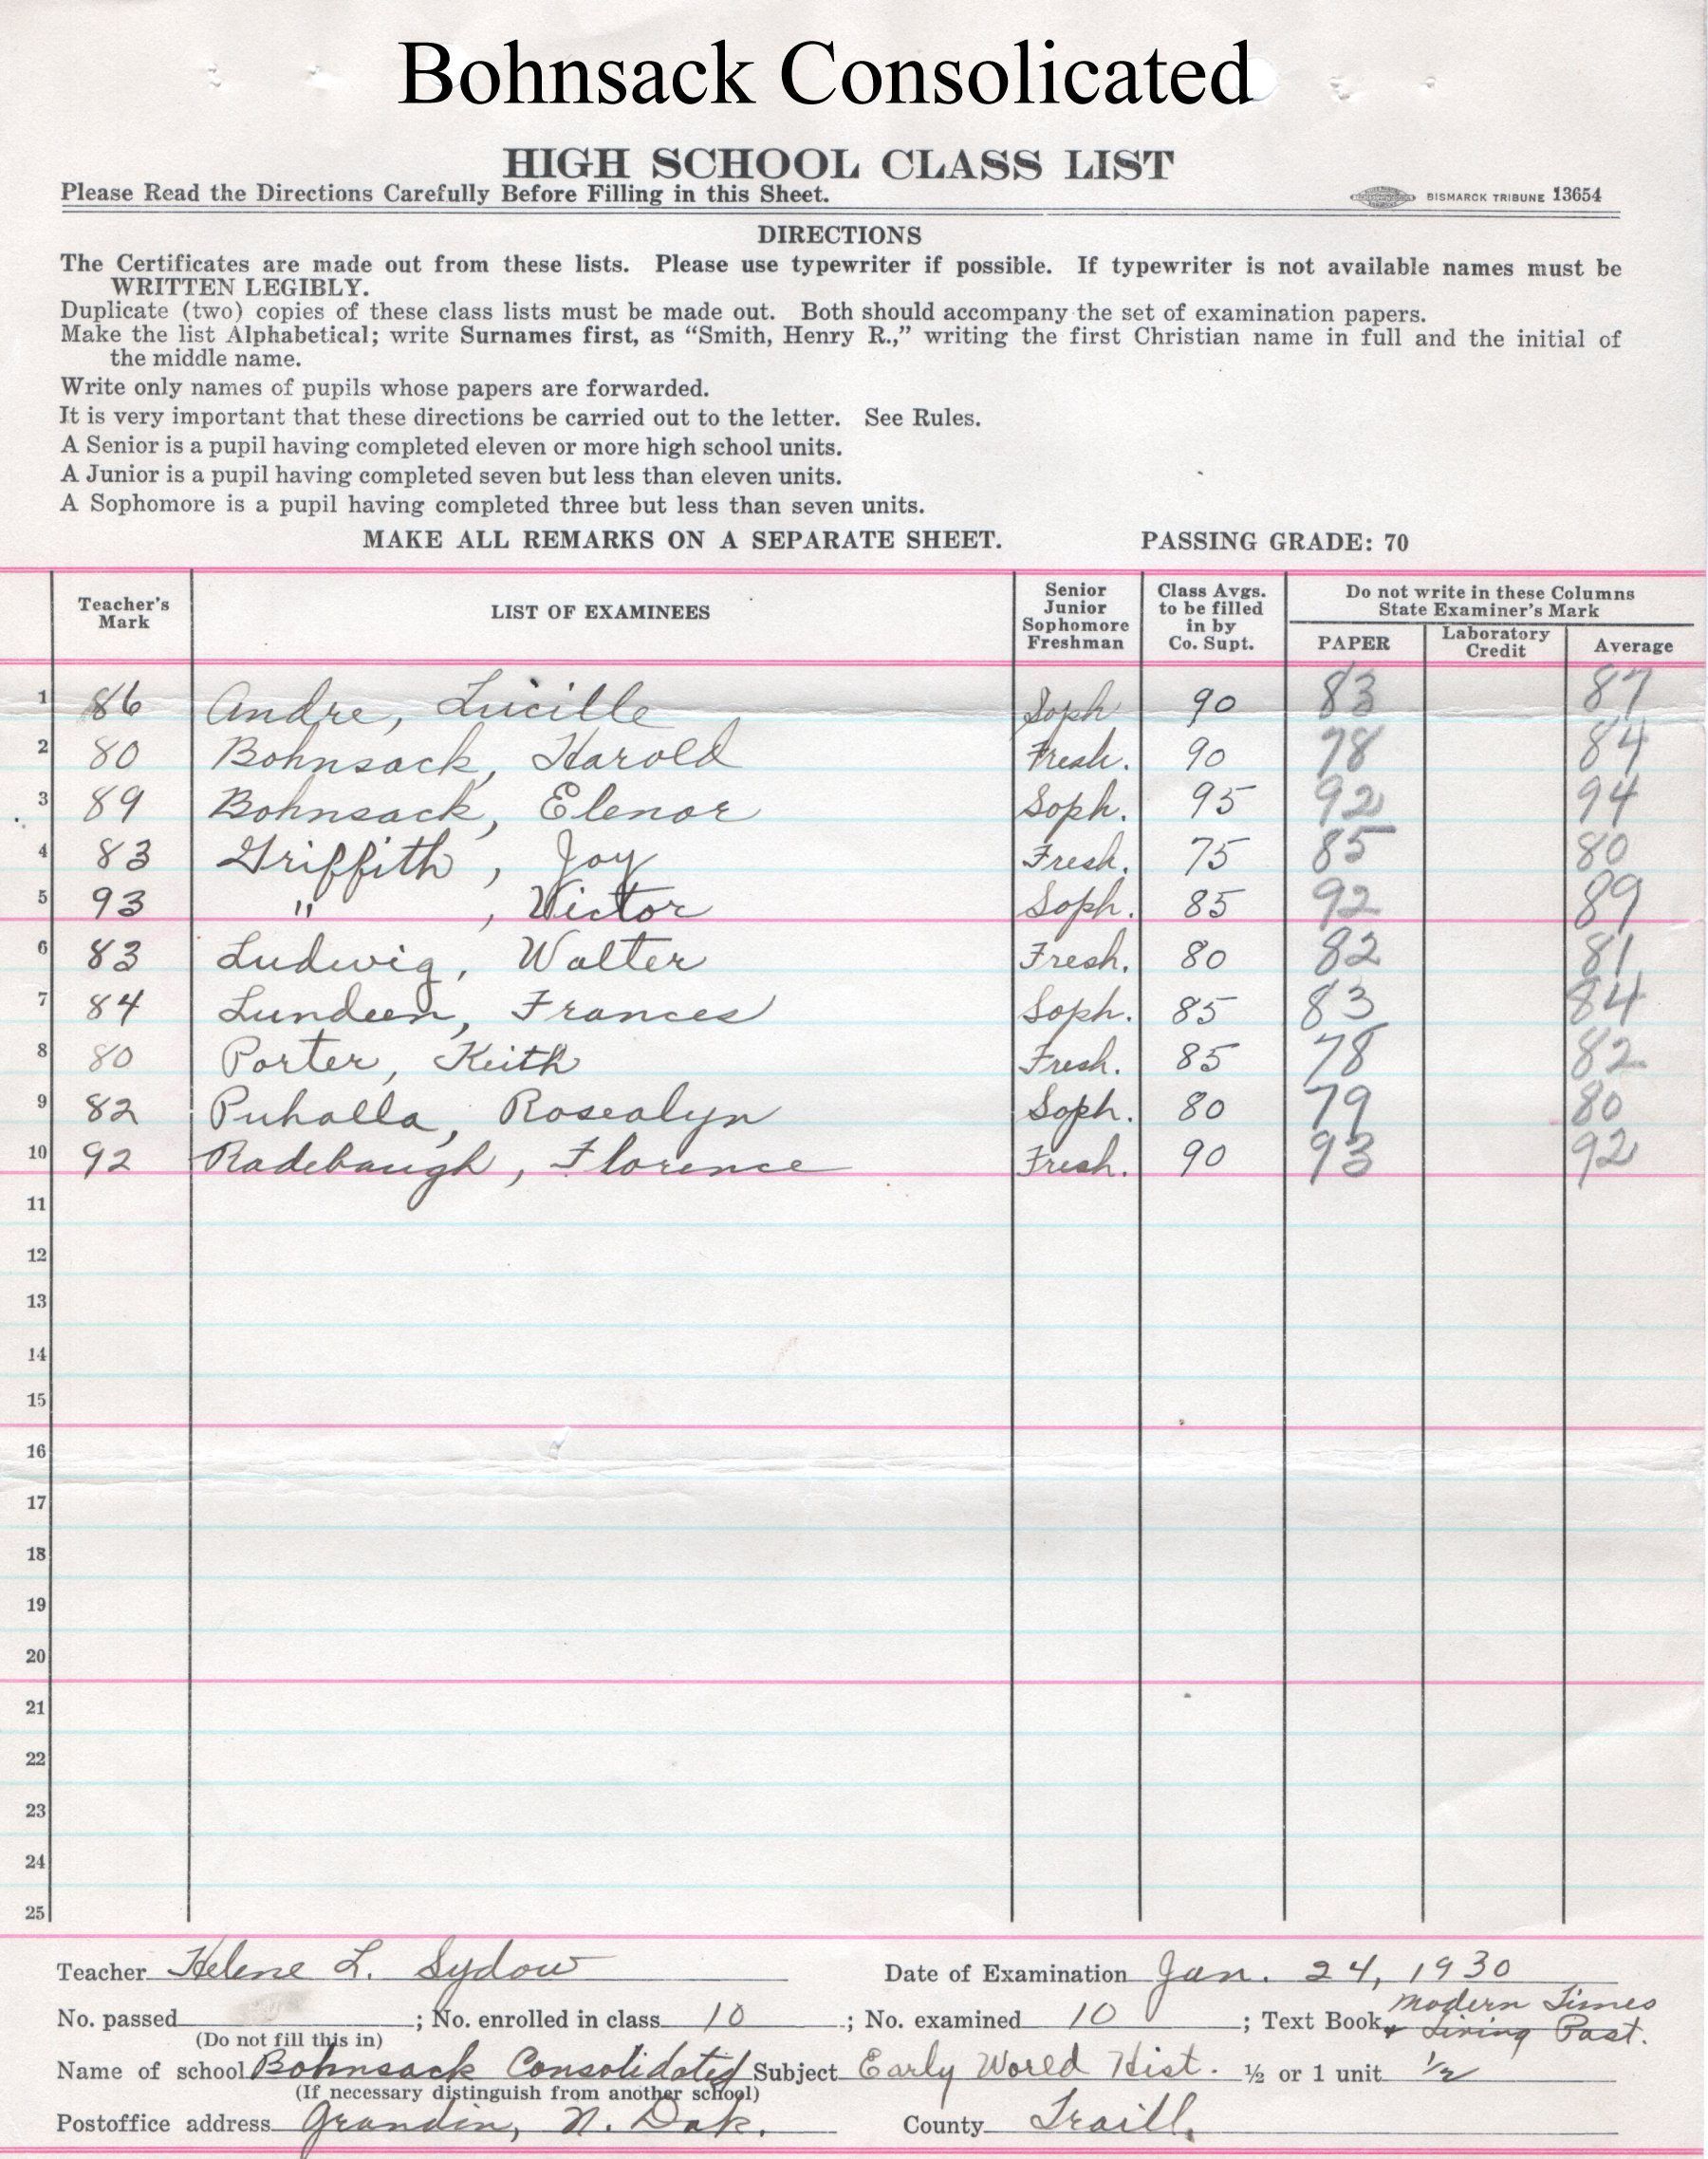 Bohnsack Consolicated
HIGH SCHOOL CLASS LIST
Please Read the Directions Carefully Before Filling in this Sheet. BISMARCK TRIBUNE 13654
DIRECTIONS
The Certificates are made out from these lists. Please use typewriter if possible. If typewriter is not available names must be
WRITTEN LEGIBLY.
Duplicate (two) copies of these class lists must be made out. Both should accompany the set of examination papers.
Make the list Alphabetical; write Surnames first, as “Smith, Henry R.,” writing the first Christian name in full and the initial of
the middle name.
Write only names of pupils whose papers are forwarded.
It is very important that these directions be carried out to the letter. See Rules.
A Senior is a pupil having completed eleven or more high school units.
A Junior is a pupil having completed seven but less than eleven units.
A Sophomore is a pupil having completed three but less than seven units.
MAKE ALL REMARKS ON A SEPARATE SHEET. PASSING GRADE: 70
Teacher's Mark LIST OF EXAMINEES Senior Junior Sophomore Freshman Class Avgs. to be filled in by Co. Supt. Do not write in these Columns State Examiner's Mark PAPER Laboratory Credit Average
1 86 Andre, Lucille Soph 90 83 87
2 80 Bohnsack, Harold Fresh. 90 78 84
3 89 Bohnsack, Elenor Soph. 95 92 94
4 83 Griffith, Joy Fresh. 75 85 80
5 93 " , Victor Soph. 85 92 89
6 83 Ludwig, Walter Fresh. 80 82 81
7 84 Lundeen, Frances Soph. 85 83 84
8 80 Porter, Keith Fresh. 85 78 82
9 82 Puhalla, Rosealyn Soph. 80 79 80
10 92 Radebaugh, Florence Fresh. 90 93 92
11
12
13
14
15
16
17
18
19
20
21
22
23
24
25
Teacher Helene L. Sydow Date of Examination Jan. 24, 1930
No. passed ; No. enrolled in class 10 ; No. examined 10 ; Text Book Modern Times
+ Living Past.
(Do not fill this in)
Name of school Bohnsack Consolidated Subject Early World Hist. ½ or 1 unit ½
(If necessary distinguish from another school)
Postoffice address Grandin, N. Dak. County Traill.